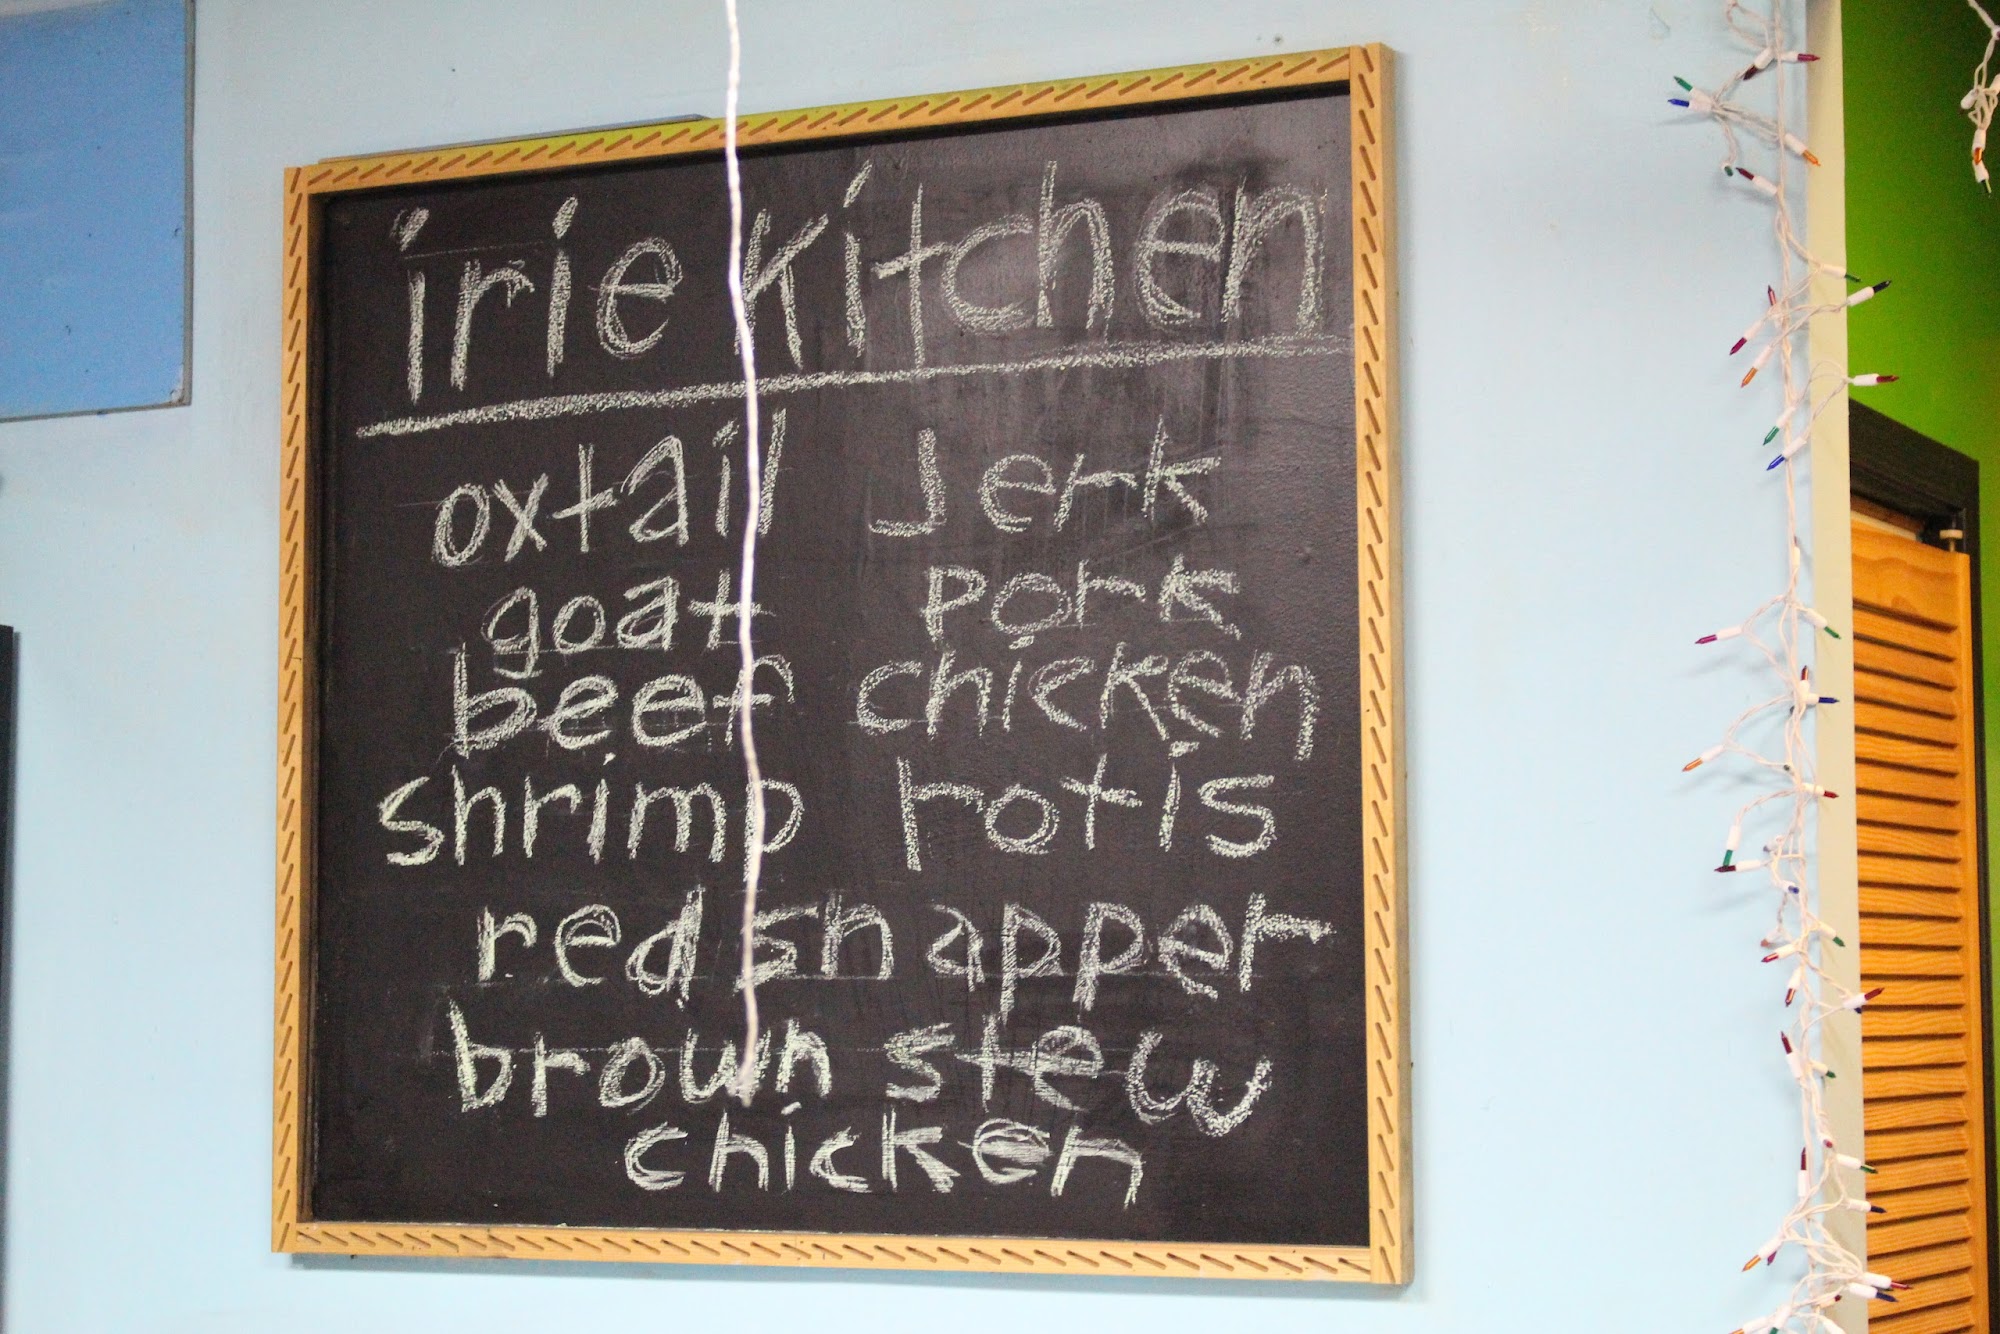 irie kitchen
oxtail Jerk
goat pork
beef chicken
shrimp rotis
red snapper
brown stew
chicken